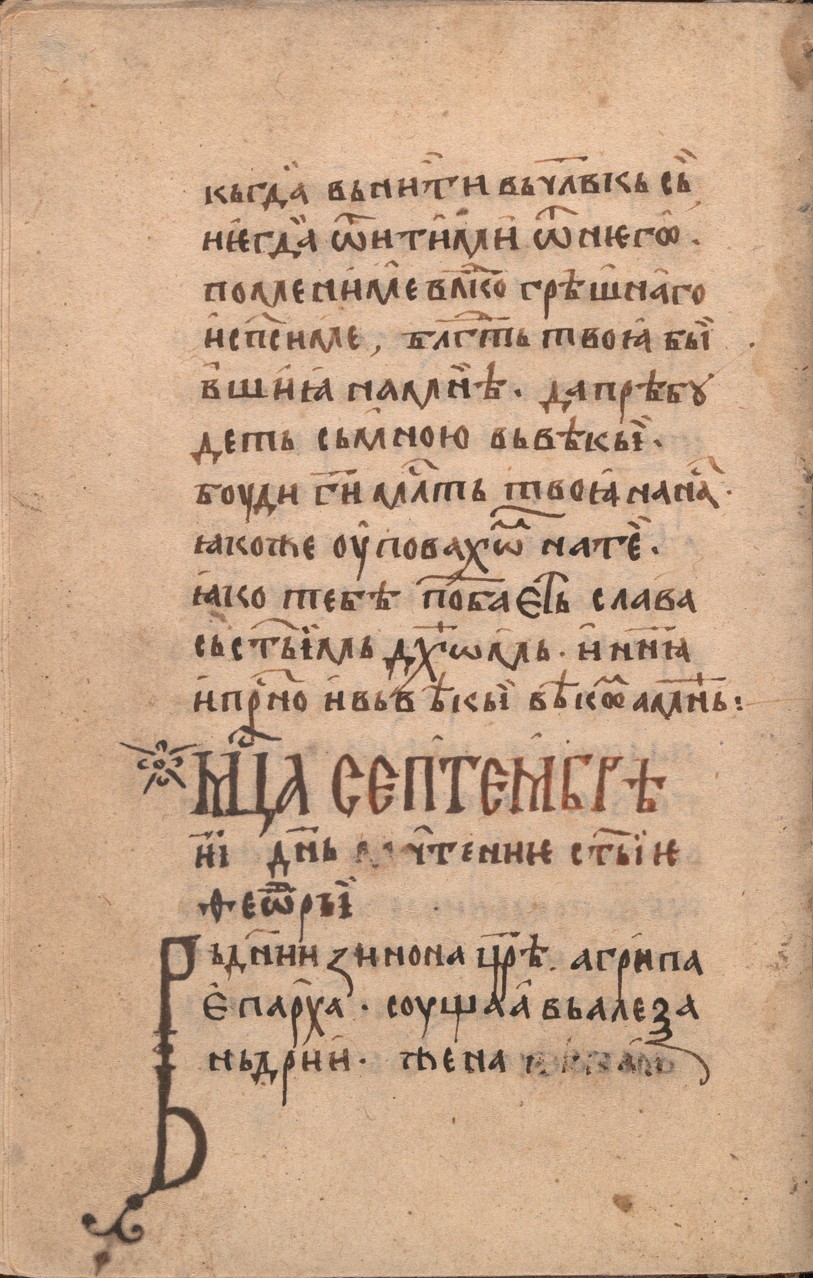 кьгда̀ вьни́ти вьчл҃вкь съ̏
нѥгда̀ ѿити́ми ѿнѥгѡ̑ .
поменимѐ вл҃ко грѣшнаго
и҆сп҃си́ме , бл҃гⷣть твоꙗ бы̏
вшиꙗ̀ намнѣ̀ . да прѣбꙋ
деть сьмною вьвѣкы̏ .
боуди г҃и мл҃ть твоꙗ нана́с .
ꙗкоже оу҆повахѡ̑м натѐ .
ꙗко тебѣ по́баѥть слава
сь̏ст҃ы̏мь дх҃ѡмь . и҆ нн҃ꙗ
и҆пр҇но и҆вьвѣкы̏ вѣкѡ̑ амнь :
Мⷭ҇ца СЕПТЕМБРѢ
і҃і дн҃ь чтенїе ст҃ыїѥ
ѳеѡ̑ры̏
Вьднїи зинона цр҃ѣ . агрипа
є҆парха̀ . соущаа̀ вьалеѯа
ньдрїи . жена